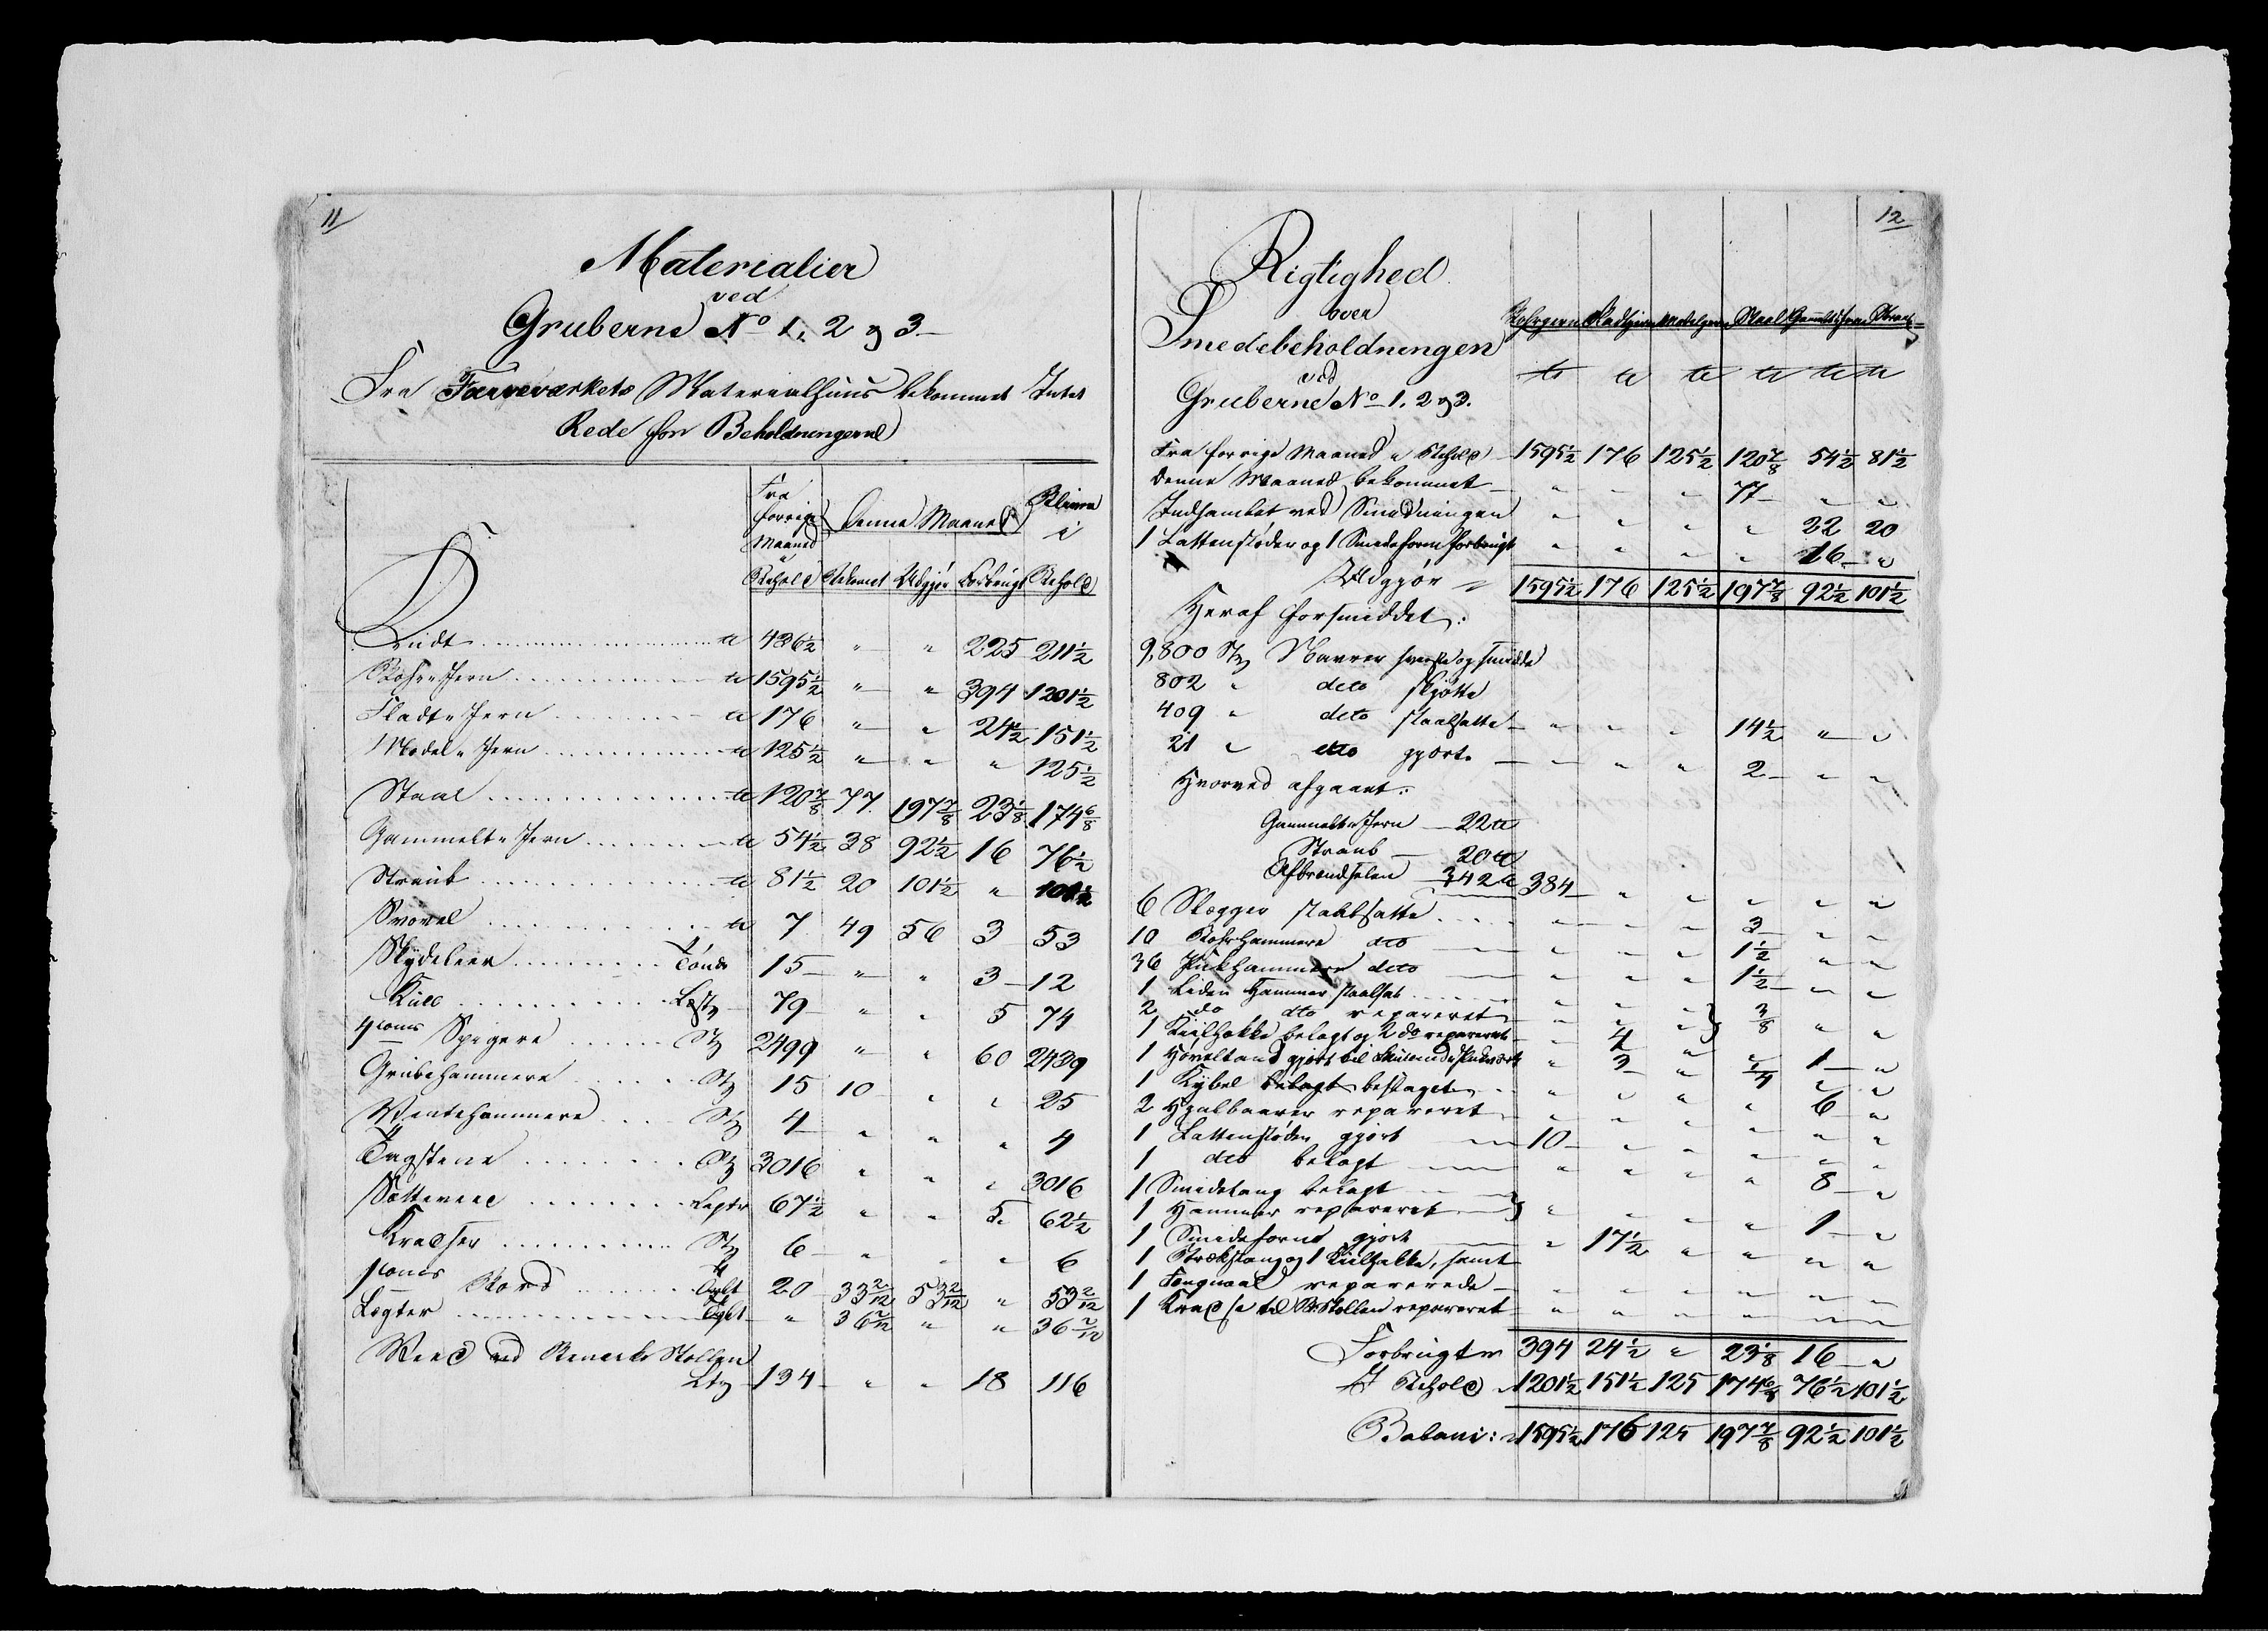 11
Materialier
ved
Gruberne No 1, 2 og 3
Fra Farveværkets Materialhuus bekommet Intet
Rede for Beholdningerne
Fra forrige Maaned i Behold | Denne Maaned | Bliver i
Bekomet | Udgjør | Forbrugt | Behold
Krudt ℔ 436½ " " 225 211½
Bohr Jern ℔ 1595½ " " 394 1201½
Fladt Jern ℔ 176 " " 24½ 151½
Model Jern ℔ 125½ " " " 125½
Staal ℔ 120⅞ 77 197⅞ 23⅛ 174 6/8
Gammelt Jern ℔ 54½ 38 92½ 16 76½
Straub ℔ 81½ 20 101½ " 101½
Svovel ℔ 7 49 56 3 53
Skydeleer Tønde 15 " " 3 12
Kull Lester 79 " " 5 74
4 toms Spigere Stk 2499 " " 60 2439
Grubehammere Stk 15 10 " " 25
Vendehammere Stk 4 " " " 4
Tagstene Stk 3016 " " " 3016
Sætteveed 67½ " " 5 62½
Kradser Stk 6 " " " 6
1 toms Bord Tylt 20 33 2/12 53 2/12 " 53 2/12
Lægter Tylt " 36 2/12 " " 36 2/12
Veed ved Stollen
134 " " 18 116
12
Rigtighed
over
Smedebeholdningen
ved
Gruberne No 1, 2 og 3.
Bohrjern Fladtjern Modeljern Staal Gammelt Jern Straub
℔ ℔ ℔ ℔ ℔ ℔
Fra forrige Maaned i Behold 1595½ 176 125½ 120⅞ 54½ 81½
Denne Maaned bekommet " " " 77 " "
Indsamlet ved Smedningen " " " " 22 20
1 Lattenfløder og 1 Smedeform forbrugt " " " " 16 "
Udgjør 1595½ 176 125½ 197⅞ 92½ 101½
Heraf forsmiddet:
9,800 Stk Navrer hvesste og smedde
802 " dito skjøtte
409 " dito staalsatte " " " 14½ " "
21 " dito gjort " " " 2 " "
Hvorved afgaaet:
Gammelt Jern 22 ℔
Straub 20 ℔
Afbrændselen 342 ℔ 384 " " " " "
6 Slægger staalsatte " " " 3 " "
10 Bohrhammere dto " " " 1½ " "
36 Pukhammere dito " " " 1½ " "
1 Leden Hammer staalsat
2 do dto repareret " " " ⅜ " "
1 Kiilhakke belagt og 2 do repareret " 4 " " "
1 gjort til " 3 " ¼ 1 "
1 Kybel belagt beslaget " " " " 6 "
2 Hjulbaarer repareret " " " " " "
1 Lattenfløder gjort 10 " " " " "
1 dto belagt " " " " 8 "
1 Smedetang belagt
1 Hammer repareret " " " " 1 "
1 Smedeform gjort " 17½ " " " "
1 Strækstang og 1 Kiilhakke, samt
1 repareredes " " " " " "
1 Kradse til Stollen repareret " " " " " "
Forbrugt 394 24½ " 23⅛ 16 "
I Behold 1201½ 151½ 125 174 6/8 76½ 101½
Balanc: 1595½ 176 125 197⅞ 92½ 101½